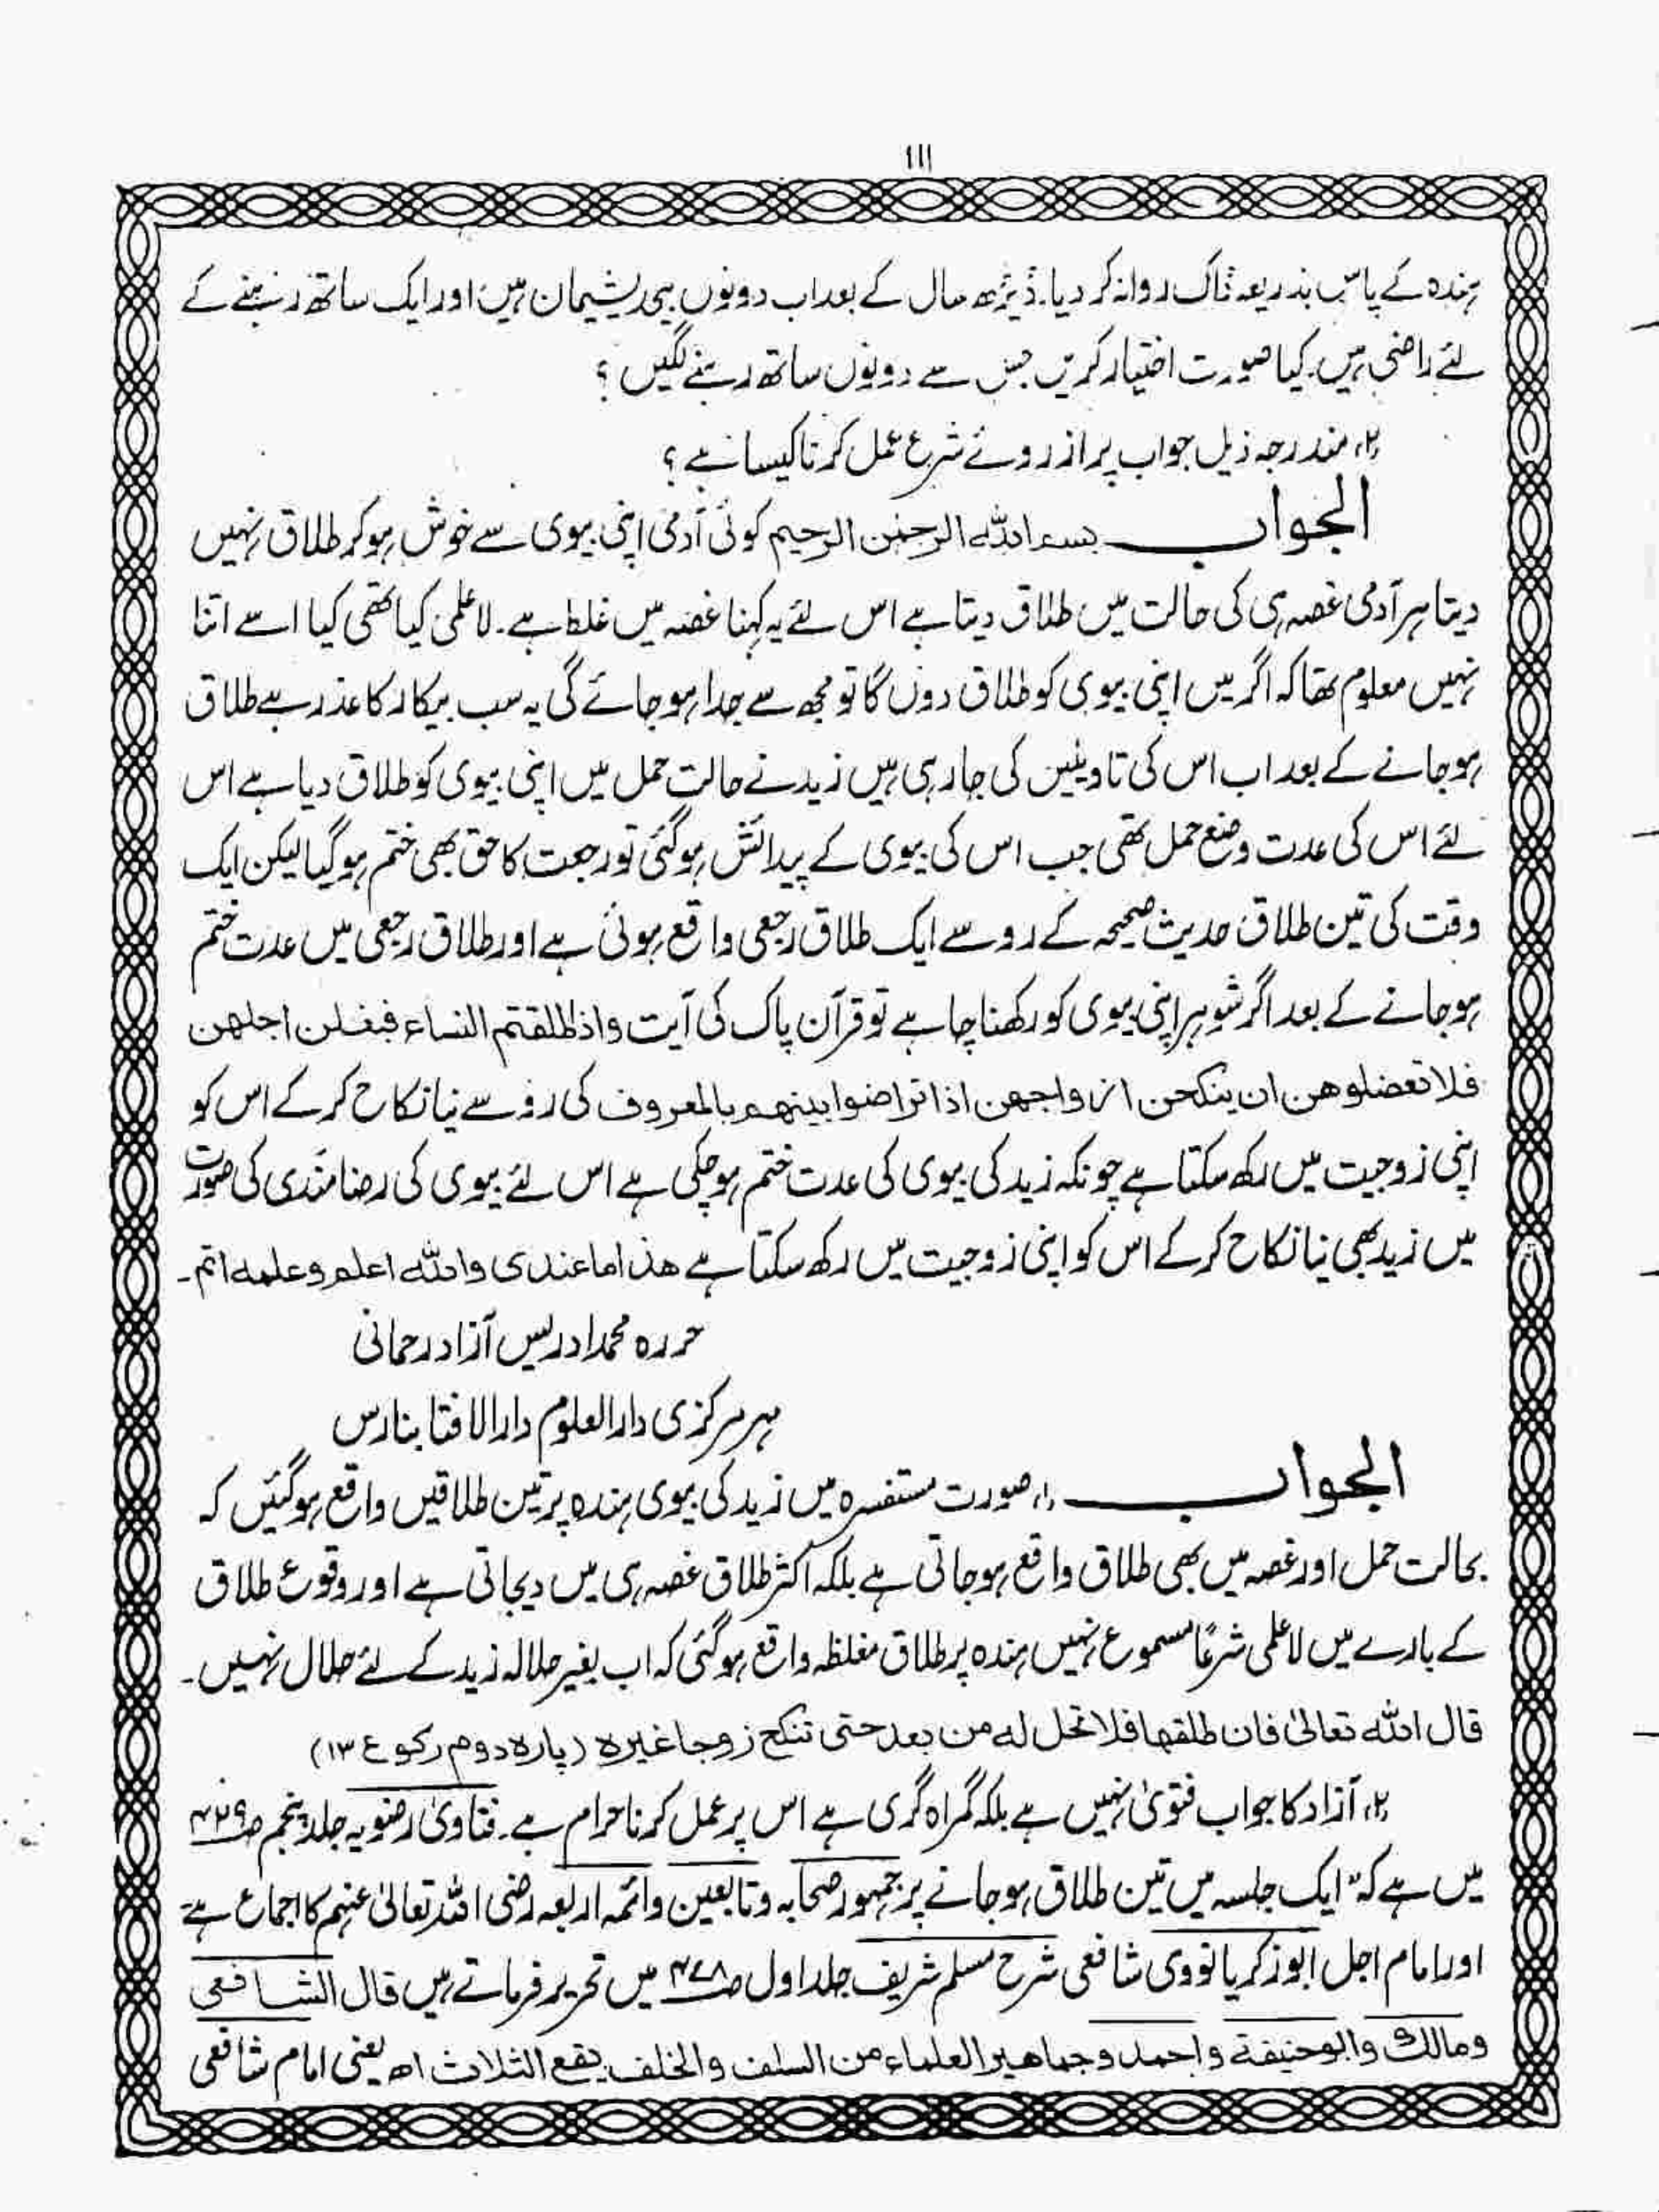 ۱۱۱
ہندہ کے پاس بذریعہ ڈاک روانہ کر دیا۔ ڈیڑھ سال کے بعد اب دونوں ہی پشیمان ہیں اور ایک ساتھ رہنے کے
لئے راضی ہیں۔ کیا صورت اختیار کریں جس سے دونوں ساتھ رہنے لگیں؟
(۲) مندرجہ ذیل جواب پر از روئے شرع عمل کرنا کیسا ہے؟
الجواب ــــ بسم اللہ الرحمٰن الرحیم کوئی آدمی اپنی بیوی سے خوش ہو کر طلاق نہیں
دیتا ہر آدمی غصہ ہی کی حالت میں طلاق دیتا ہے اس لئے یہ کہنا غصہ میں غلط ہے۔ لاعلمی کیا تھی کیا اسے اتنا
نہیں معلوم تھا کہ اگر میں اپنی بیوی کو طلاق دوں گا تو مجھ سے جدا ہو جائے گی یہ سب بیکار کا عذر ہے طلاق
ہو جانے کے بعد اب اس کی تاویلیں کی جا رہی ہیں زید نے حالت حمل میں اپنی بیوی کو طلاق دیا ہے اس
لئے اس کی عدت وضع حمل تھی جب اس کی بیوی کے پیدائش ہو گئی تو رجعت کا حق بھی ختم ہو گیا لیکن ایک
وقت کی تین طلاق حدیث صحیحہ کے رو سے ایک طلاق رجعی واقع ہوئی ہے اور طلاق رجعی میں عدت ختم
ہو جانے کے بعد اگر شوہر اپنی بیوی کو رکھنا چاہے تو قرآن پاک کی آیت واذا طلقتم النساء فبلغن اجلھن
فلا تعضلوھن ان ینکحن ازواجھن اذا تراضوا بینھم بالمعروف کی رو سے نیا نکاح کر کے اس کو
اپنی زوجیت میں رکھ سکتا ہے چونکہ زید کی بیوی کی عدت ختم ہو چکی ہے اس لئے بیوی کی رضامندی کی صورت
میں زید بھی نیا نکاح کر کے اس کو اپنی زوجیت میں رکھ سکتا ہے ھذا ما عندی واللہ اعلم وعلمہ اتم۔
حررہ محمد ادریس آزاد رحمانی
مہر مرکزی دارالعلوم دارالافتا بنارس
الجواب ــــ (۱) صورت مستفسرہ میں زید کی بیوی ہندہ پر تین طلاقیں واقع ہو گئیں کہ
بحالت حمل اور غصہ میں بھی طلاق واقع ہو جاتی ہے بلکہ اکثر طلاق غصہ ہی میں دیجاتی ہے اور وقوع طلاق
کے بارے میں لاعلمی شرعاً مسموع نہیں ہندہ پر طلاق مغلظہ واقع ہو گئی کہ اب بغیر حلالہ زید کے لئے حلال نہیں۔
قال اللہ تعالیٰ فان طلقھا فلا تحل لہ من بعد حتی تنکح زوجا غیرہ (پارہ دوم رکوع ۱۳)
(۲) آزاد کا جواب فتویٰ نہیں ہے بلکہ گمراہ گری ہے اس پر عمل کرنا حرام ہے۔ فتاویٰ رضویہ جلد پنجم ص۴۲۹
میں ہے کہ "ایک جلسہ میں تین طلاق ہو جانے پر جمہور صحابہ و تابعین وائمہ اربعہ رضی اللہ تعالیٰ عنہم کا اجماع ہے"
اور امام اجل ابو زکریا نووی شافعی شرح مسلم شریف جلد اول ص۴۷۸ میں تحریر فرماتے ہیں قال الشافعی
ومالک وابوحنیفۃ واحمد وجماھیر العلماء من السلف والخلف یقع الثلاث اھ یعنی امام شافعی